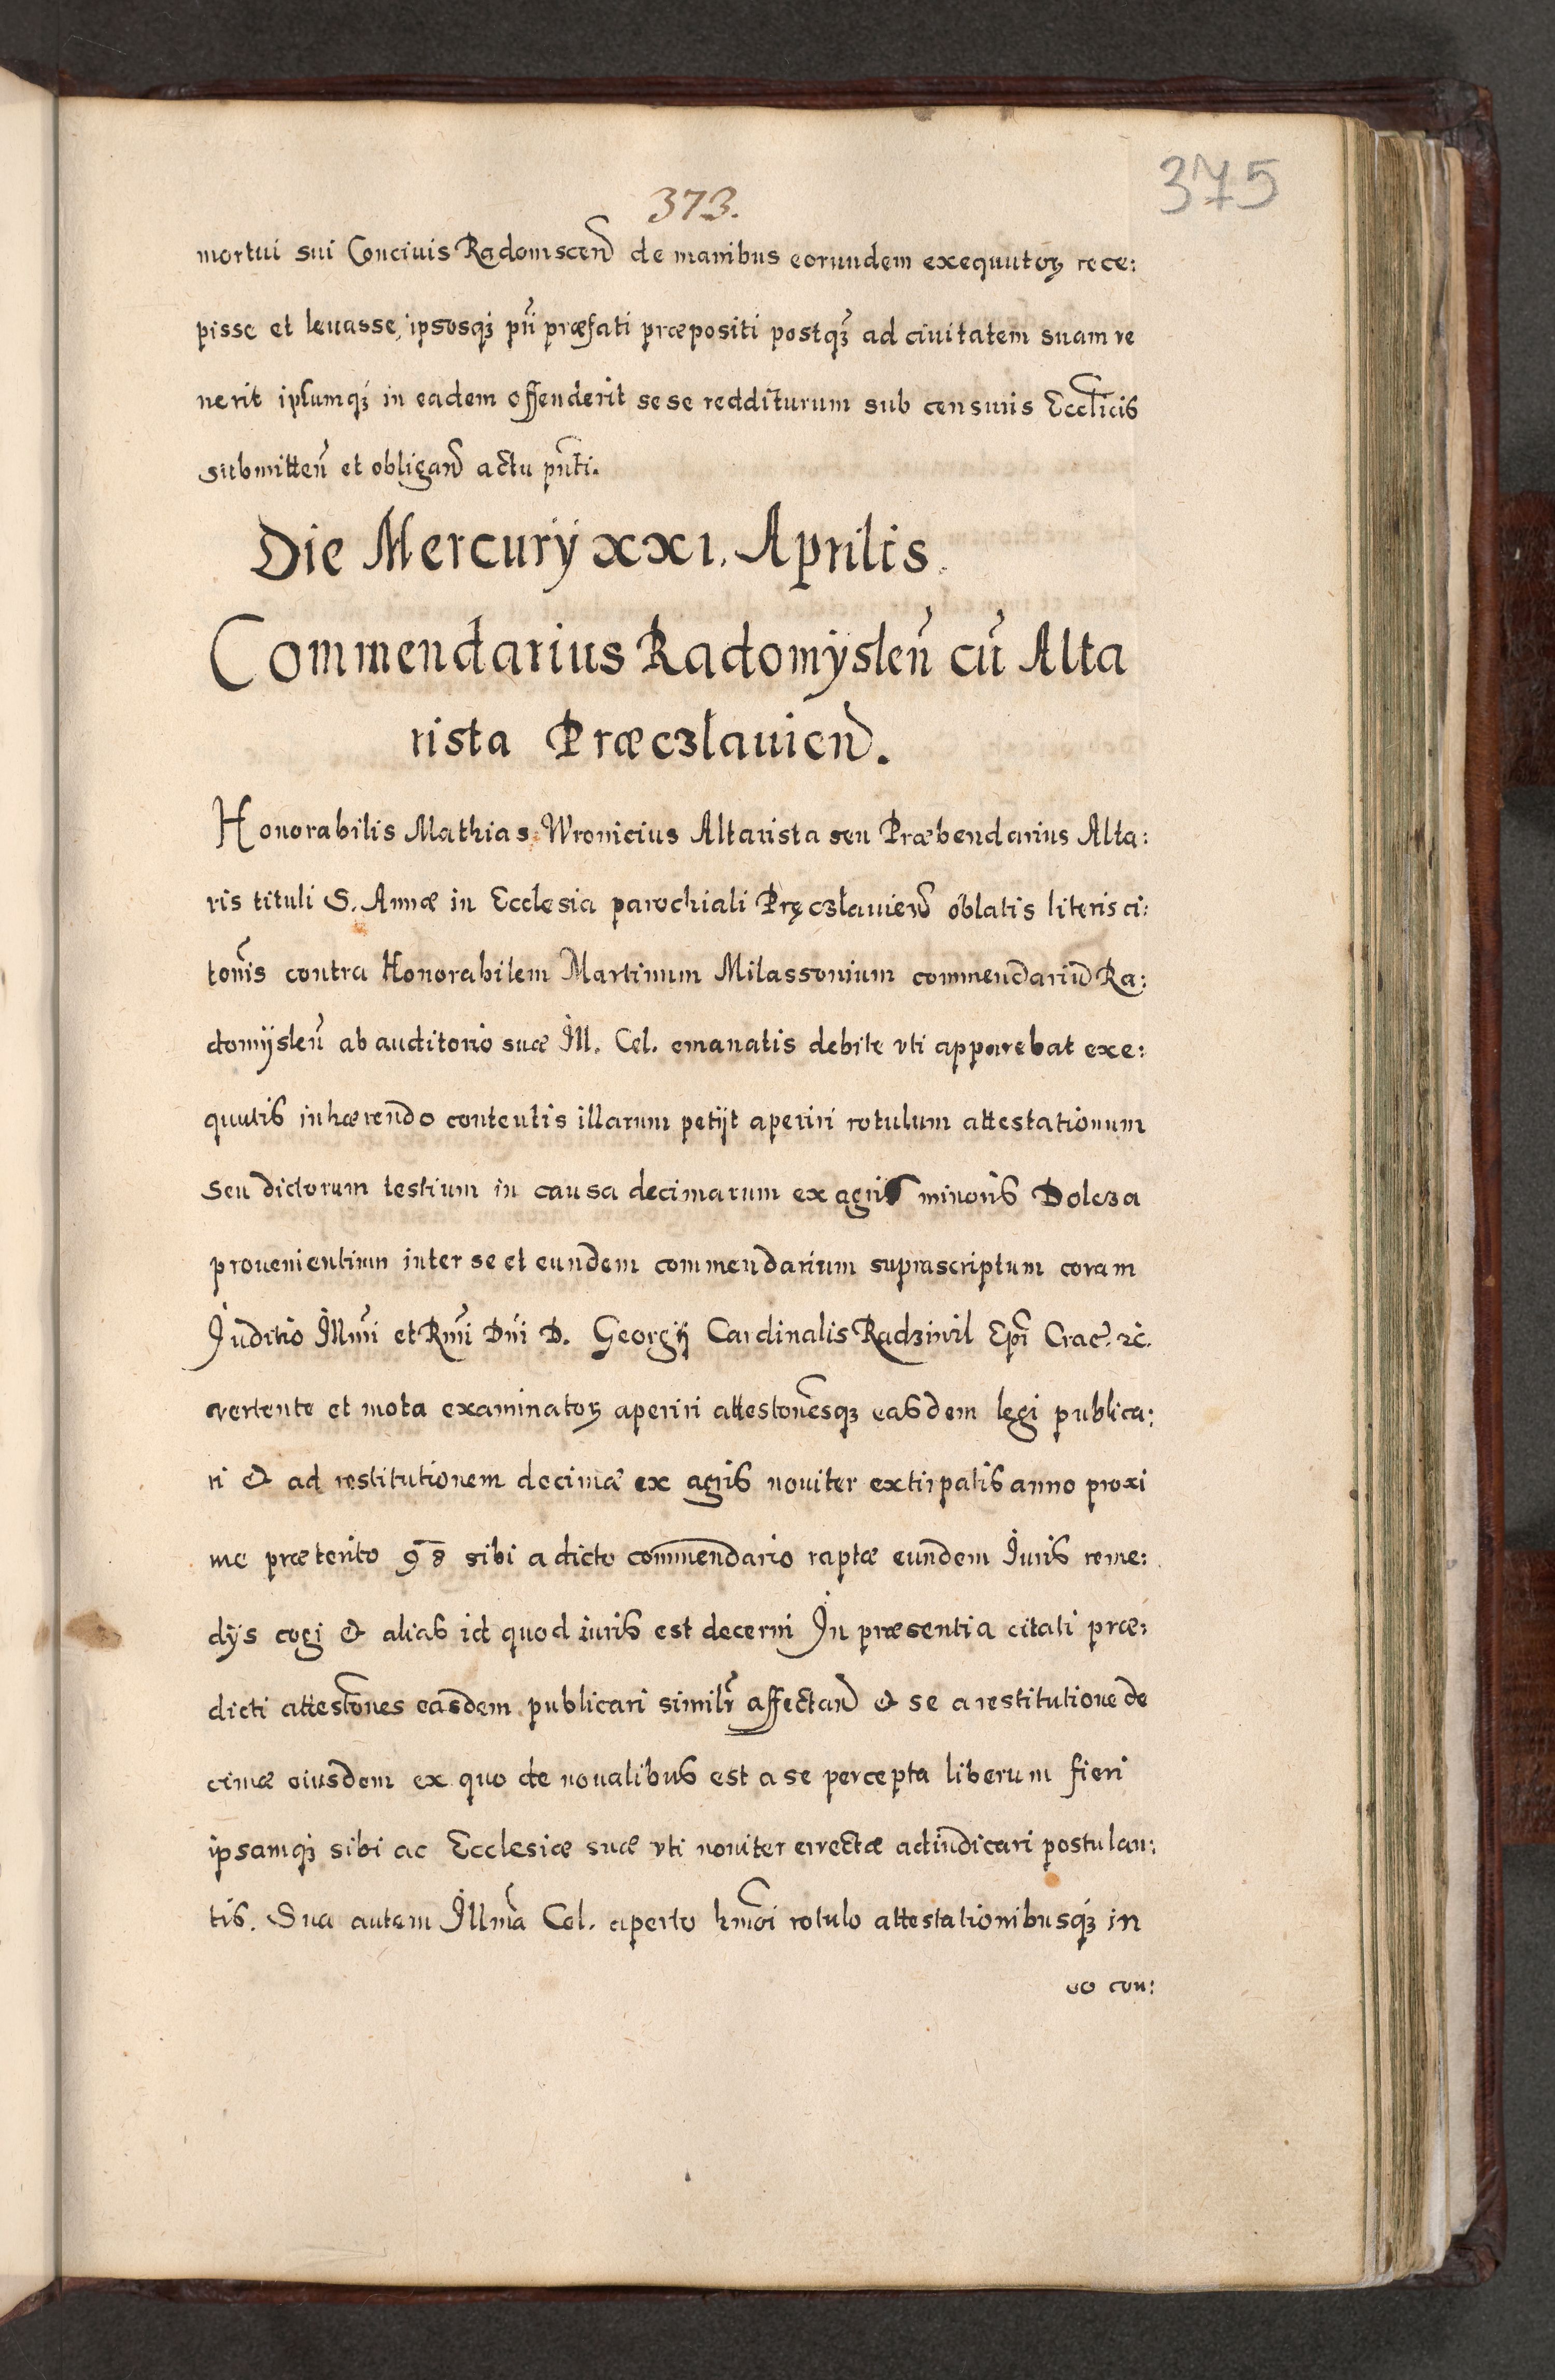 373.
375
mortui sui Conciuis Radomscen̄ de manibus eorundem exequutoꝝ rece:
pisse et leuasse, ipsosqꝫ pn̄ præfati præpositi postqꝫ̄ ad ciuitatem suam ve
nerit ipsumqꝫ in eadem offenderit sese redditurum sub censuris Eccl̄icis
submitten̄ et obligan̄ actu pn̄ti.
Die Mercurÿ xx1. Aprilis.
Commendarius Radomÿslen̄ cū Alta
rista Præcꝫlauien̄.
Honorabilis Mathias Wronicius Altarista seu Præbendarius Alta:
ris tituli S. Annæ in Ecclesia parochiali Pręcꝫlauien̄ oblatis literis ci:
ton̄is contra Honorabilem Martinum Milassonium commendariū Ra:
domÿslen̄ ab auditorio suæ Ill. Cel. emanatis debite vti apparebat exe:
qutis inhærendo contentis illarum petÿt aperiri rotulum attestationum
seu dictorum testium in causa decimarum ex agris minoris Dolcꝫa
prouenientium inter se et eundem commendarium suprascriptum coram
Juditio Illm̄i et Rm̄i Dn̄i D. Georgÿ Cardinalis Radꝫiwil Ep̄i Crac̄. ꝛc̄.
vertente et mota examinatoꝝ aperiri attestōnesqꝫ easdem legi publica:
ri & ad restitutionem decimæ ex agris nouiter extirpatis anno proxi
me præterito 98 sibi a dicto com̄endario raptæ eundem Juris reme:
dÿs cogi & alias id quod iuris est decerni In præsentia citati præ:
dicti attestōnes easdem publicari similr̄ affectan̄ & se a restitutione de
cimæ eiusdem ex quo de noualibus est a se percepta liberum fieri
ipsamqꝫ sibi ac Ecclesiæ suæ vti nouiter errectæ adiudicari postulan:
tis. Sua autem Illm̄a Cel. aperto hm̄oi rotulo attestationibusqꝫ in
eo con: